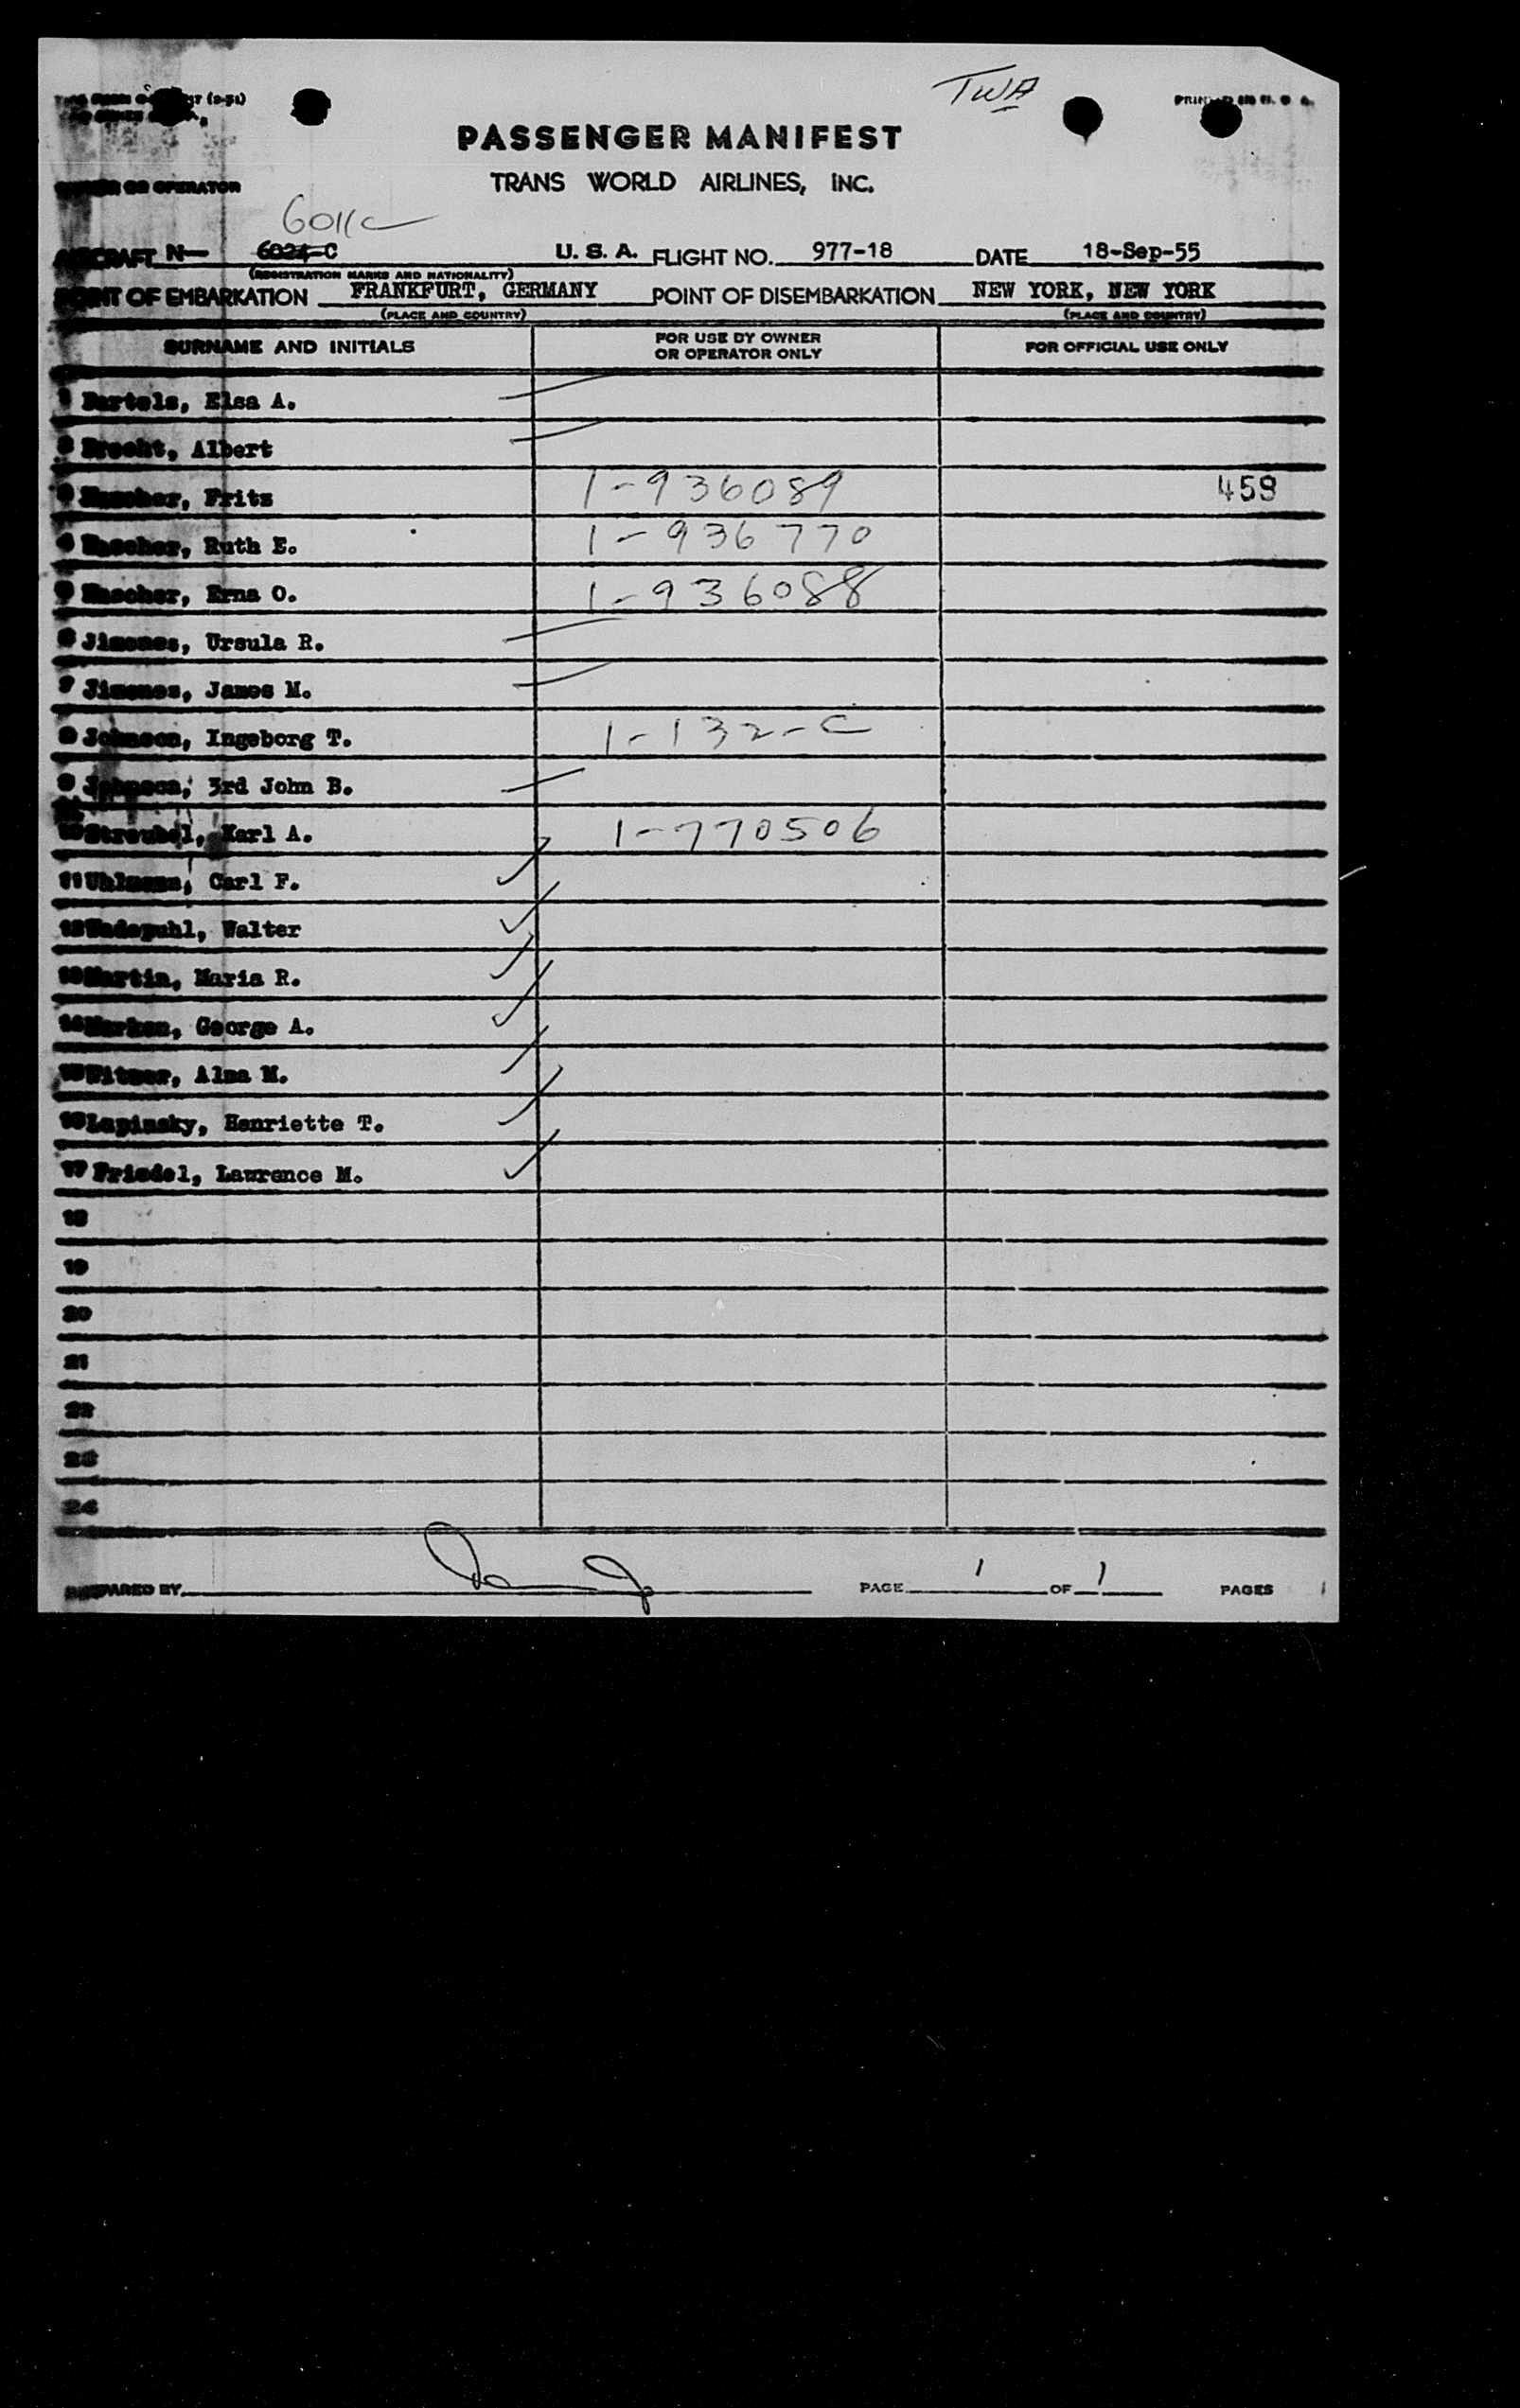 TWA
PASSENGER MANIFEST
TRANS WORLD AIRLINES, INC.
OWNER OR OPERATOR
6011C
AIRCRAFT N— 6024-C U. S. A. FLIGHT NO. 977-18 DATE 18-Sep-55
(REGISTRATION MARKS AND NATIONALITY)
POINT OF EMBARKATION FRANKFURT, GERMANY POINT OF DISEMBARKATION NEW YORK, NEW YORK
(PLACE AND COUNTRY) (PLACE AND COUNTRY)
SURNAME AND INITIALS FOR USE BY OWNER OR OPERATOR ONLY FOR OFFICIAL USE ONLY
1 Bartels, Elsa A.
2 Brecht, Albert
3 Fritz 1-936089 459
4 Ruth E. 1-936770
5 Erna O. 1-936088
6 Jimenes, Ursula R.
7 Jimenes, James M.
8 Johnson, Ingeborg T. 1-132-C
9 Johnson, 3rd John B.
10 Streubel, Karl A. 1-770506
11 Uhlmann, Carl F.
12 Wadepuhl, Walter
13 Martin, Maria R.
14 George A.
15 Witmer, Alma M.
16 Lapinsky, Henriette T.
17 Friedel, Lawrence M.
18
19
20
21
22
23
24
PREPARED BY PAGE 1 OF 1 PAGES